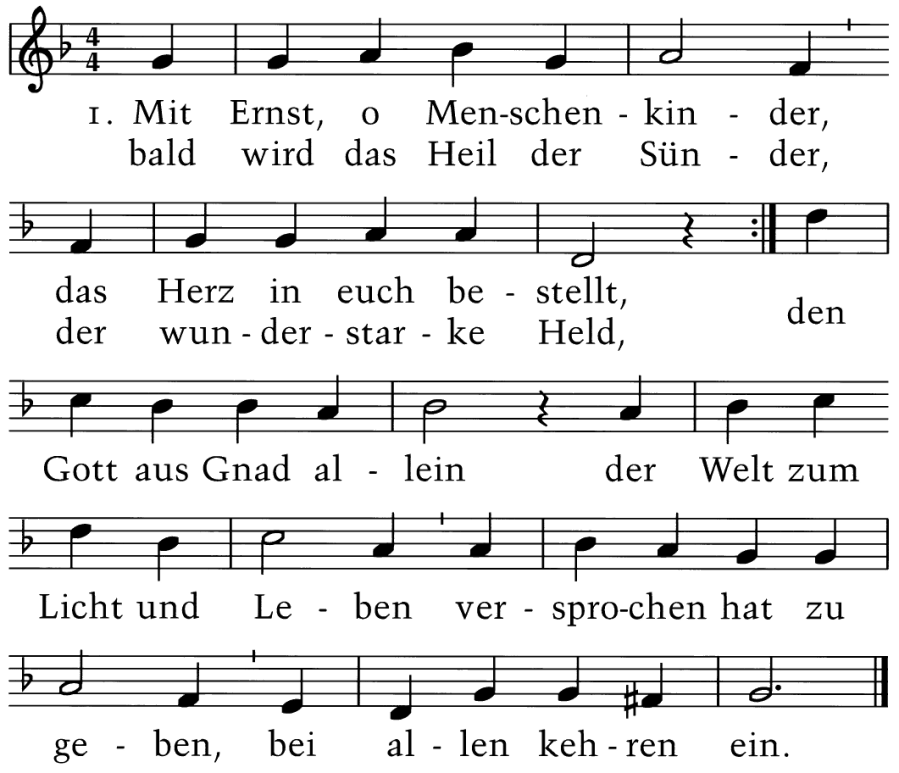 1. Mit Ernst, o Men-schen - kin - der,
bald wird das Heil der Sün - der,
das Herz in euch be - stellt,
der wun - der - star - ke Held,
den
Gott aus Gnad al - lein der Welt zum
Licht und Le - ben ver - spro-chen hat zu
ge - ben, bei al - len keh - ren ein.